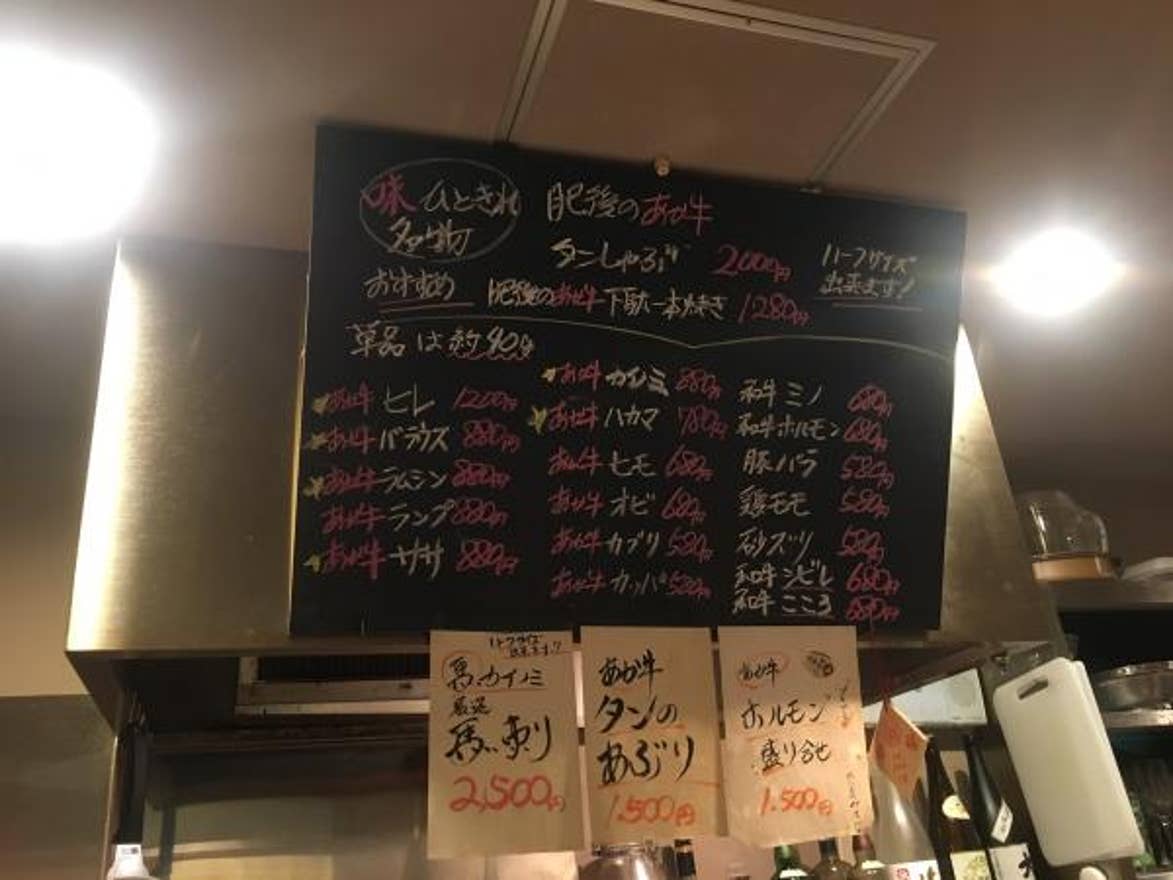 味ひときれ
名物
肥後のあか牛
タンしゃぶ 2000円
ハーフサイズ
出来ます!
おすすめ 肥後のあか牛 下駄一本焼き 1280円
単品は約40g
あか牛 ヒレ 1200円
あか牛 バラウス 880円
あか牛 ラムシン 880円
あか牛 ランプ 880円
あか牛 ササ 880円
あか牛 カイノミ 880円
あか牛 ハカマ 780円
あか牛 ヒモ 680円
あか牛 オビ 680円
あか牛 カブリ 580円
あか牛 カッパ 580円
和牛 ミノ 680円
和牛 ホルモン 680円
豚バラ 580円
鶏モモ 580円
砂ズリ 580円
和牛 シビレ 680円
和牛 こころ 680円
ハーフサイズ
出来ます!!
馬カイノミ
厳選
馬刺り
2,500円
あか牛
タンの
あぶり
1,500円
あか牛
ホルモン
盛り合せ
1,500円